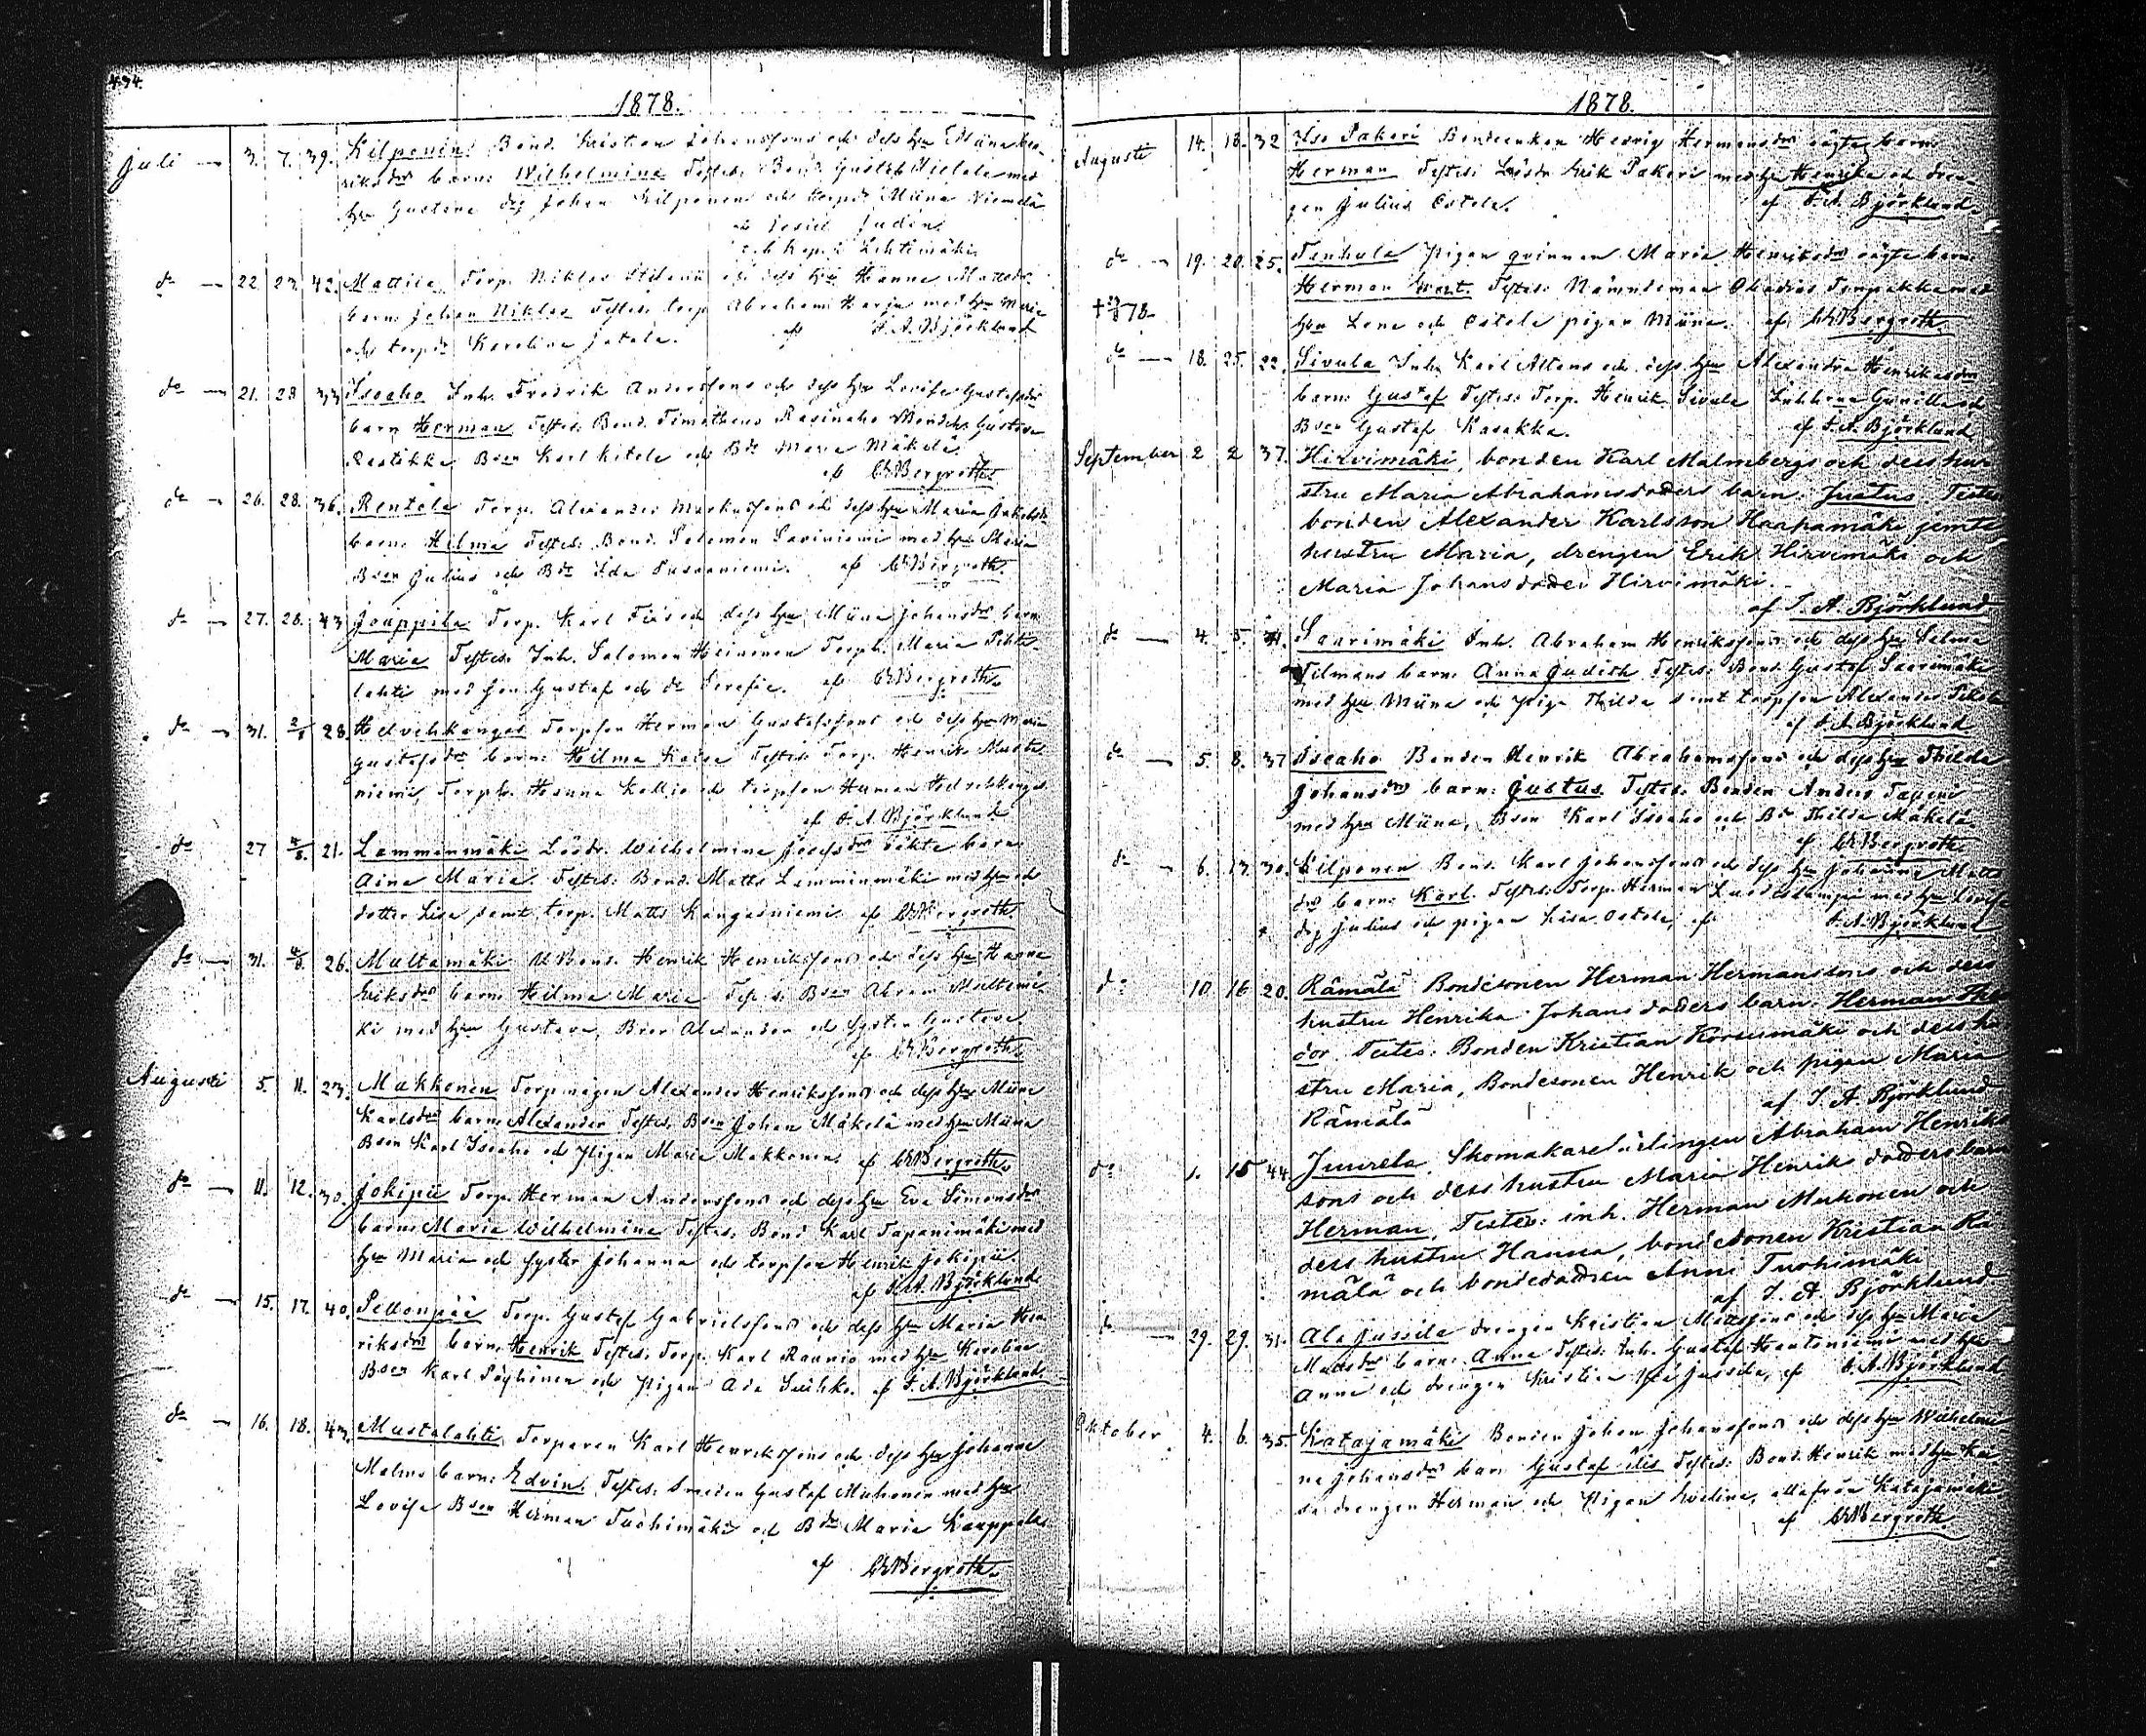 434.
1878.
Juli — 3. 7. 39. Kilponen Bond. Kristian Johanssons och dess hu Miina Hen-
riksdr barn: Wilhelmina Testes: Bond. Gustaf med
hu Gustava drg Johan Kilponen och torpdr Miina Niemelä
af Jesiel Judén
v. k. kap. i Lehtimäki
do — 22. 23. 42. Mattila Torp. Niklas och dess hu Hanna Mattsdr
barn: Johan Niklas Testes: torp. Abraham Harju med hu Maria
och torpdr Karolina Jatala. af I. A. Björklund
do — 21. 23 33 Isoaho Inh. Fredrik Anderssons och dess hu Lovisa Gustafsdr
barn Herman Testes: Bond. Timotheus Rasinaho Gustava
Bson Karl Kitola och Bdr Maria Mäkelä.
af Bergroth
do — 26. 28. 36. Rentola Torp. Alexander Markussons och dess hu Maria Jakobsdr
barn: Hilma Testes: Bond. Salomon Saviniemi med hu Maria
Bson Julius och Bdr Ida Pusaaniemi. af Bergroth
do — 27. 28. 43 Jouppila Torp. Karl och dess hu Miina Johansdr barn
Maria Testes: Inh. Salomon Heinonen Torph. Maria Pihta-
lahti med son Gustaf och dr Serafia. af Bergroth
do — 31. 2/8 28. Hedvelikangas Torpson Herman Gustafssons och dess hu Maria
Gustafsdr barn: Hilma Kaisa Testes: Torp. Henrik Musta
niemi, Torph. Hanna Kallio och torpson Herman Hedvelikangas
af I. A. Björklund
do 27 4/8. 21. Lamminmäki Lösdr. Wilhelmina Josefsdr oäkta barn
Aina Maria. Testes: Bond. Matts Lamminmäki med hu och
dotter Lisa samt torp. Matts Kangasniemi af Bergroth
do — 31. 4/8. 26. Multamäki Bond. Henrik Henrikssons och dess hu Hanna
Eriksdr barn: Hilma Maria Testes: Bson Abram Multamä-
ki med hu Gustava, Bson Alexander och syster Gustava.
af Bergroth
Augusti 5. 11. 23. Makkonen Torpmågen Alexander Henrikssons och dess hu Miina
Karlsdr barn: Alexander Testes: Bson Johan Mäkelä med hu Miina
Bson Karl Isoaho och Pigan Maria Makkonen. af Bergroth
do — 11. 12. 30. Jokipii Torp. Herman Anderssons och dess hu Eva Simonsdr
barn: Maria Wilhelmina Testes: Bond. Karl Tapanimäki med
hu Maria och syster Johanna och torpson Henrik Jokipii.
af I. A. Björklund
do — 15. 17. 40. Peltonpää Torp. Gustaf Gabrielssons och dess hu Maria Hen
riksdr barn: Henrik Testes: Torp. Karl Raunio med hu Karolina
Bson Karl Pöyhönen och Pigan Ada Suihko. af I. A. Björklund
do — 16. 18. 43. Mustalahti Torparen Karl Henrikssons och dess hu Johanna
Malms barn: Edvin. Testes: Smeden Gustaf Muhonen med hu
Lovisa Bson Herman Tuohimäki och Bdr Maria Kauppila
af Bergroth
1878.
Augusti 14. 18. 32 Iso Pakari Bondeenkan Hedvig Hermansdr oägta barn
Herman Testes: Lösdr. Erik Pakari med hu Henrika och dren-
gen Julius Ostola. af I. A. Björklund
do — 19. 20. 25. Tenhula Pigan qvinnan Maria Henriksdr oägta barn
Herman Testes: Nämndeman med
hu Lena och Ostola pigan Miina. af Bergroth
do — 18. 25. 22. Sivula Inh. Karl Altens och dess hu Alexandra Henriksdr
barn: Gustaf Testes: Torp. Henrik Sivula Gunilla och
Bson Gustaf Kasakka. af I. A. Björklund
September 2 2 37. Hirvimäki, bonden Karl Malmbergs och dess hu-
stru Maria Abrahamsdotters barn: Justus Testes
bonden Alexander Karlsson Haapamäki jemte
hustru Maria, drengen Erik Hirvimäki och
Maria Johansdotter Hirvimäki.
af I. A. Björklund
do — 4. 5. Saarimäki Inh. Abraham Henrikssons och dess hu Selma
Tilmans barn: Anna Judith Testes: Bond. Gustaf Saarimäki
med hu Miina och Piga Thilda samt torpson Alexander
af I. A. Björklund
do — 5. 8. 37 Isoaho Bonden Henrik Abrahamssons och dess hu Thilda
Johansdrs barn: Justus Testes: Bonden Anders Tapeni
med hu Miina, Bson Karl Isoaho och Bdr Thilda Mäkelä
af Bergroth
do — 6. 13. 30. Kilponen Bond. Karl Johanssons och dess hu Johanna Matts
dr barn: Karl. Testes: Torp. Herman med hu Lovisa
drg Julius och pigan Lisa Ostola, af I. A. Björklund
do 10 16 20. Rämälä Bondesonen Herman Hermanssons och dess
hustru Henrika Johansdotters barn: Herman Theo
dor. Testes: Bonden Kristian Koivumäki och dess hu
stru Maria, Bondesonen Henrik och pigan Maria
Rämälä af I. A. Björklund
do 1. 15 44 Juurela. Skomakarelärlingen Abraham Henriks
sons och dess hustru Maria Henriksdotters barn
Herman, Testes: inh. Herman Muhonen och
dess hustru Hanna, bondesonen Kristian Rä
mälä och bondedottren Anni Tuohimäki
af I. A. Björklund
do — 29. 29. 31. Ala Jussila drengen Kristian Mattssons och dess hu Maria
Mattsdr barn: Anna Testes: Inh. Gustaf Hautoniemi med hu
Anna och drengen Kristian Jussila, af I. A. Björklund
Oktober 4. 6. 35. Katajamäki Bonden Johan Johanssons och dess hu Wilhelmi
na Johansdr barn Gustaf Testes: Bond. Henrik med hu
drengen Herman och Pigan Evelina, alla från Katajamäki
af Bergroth